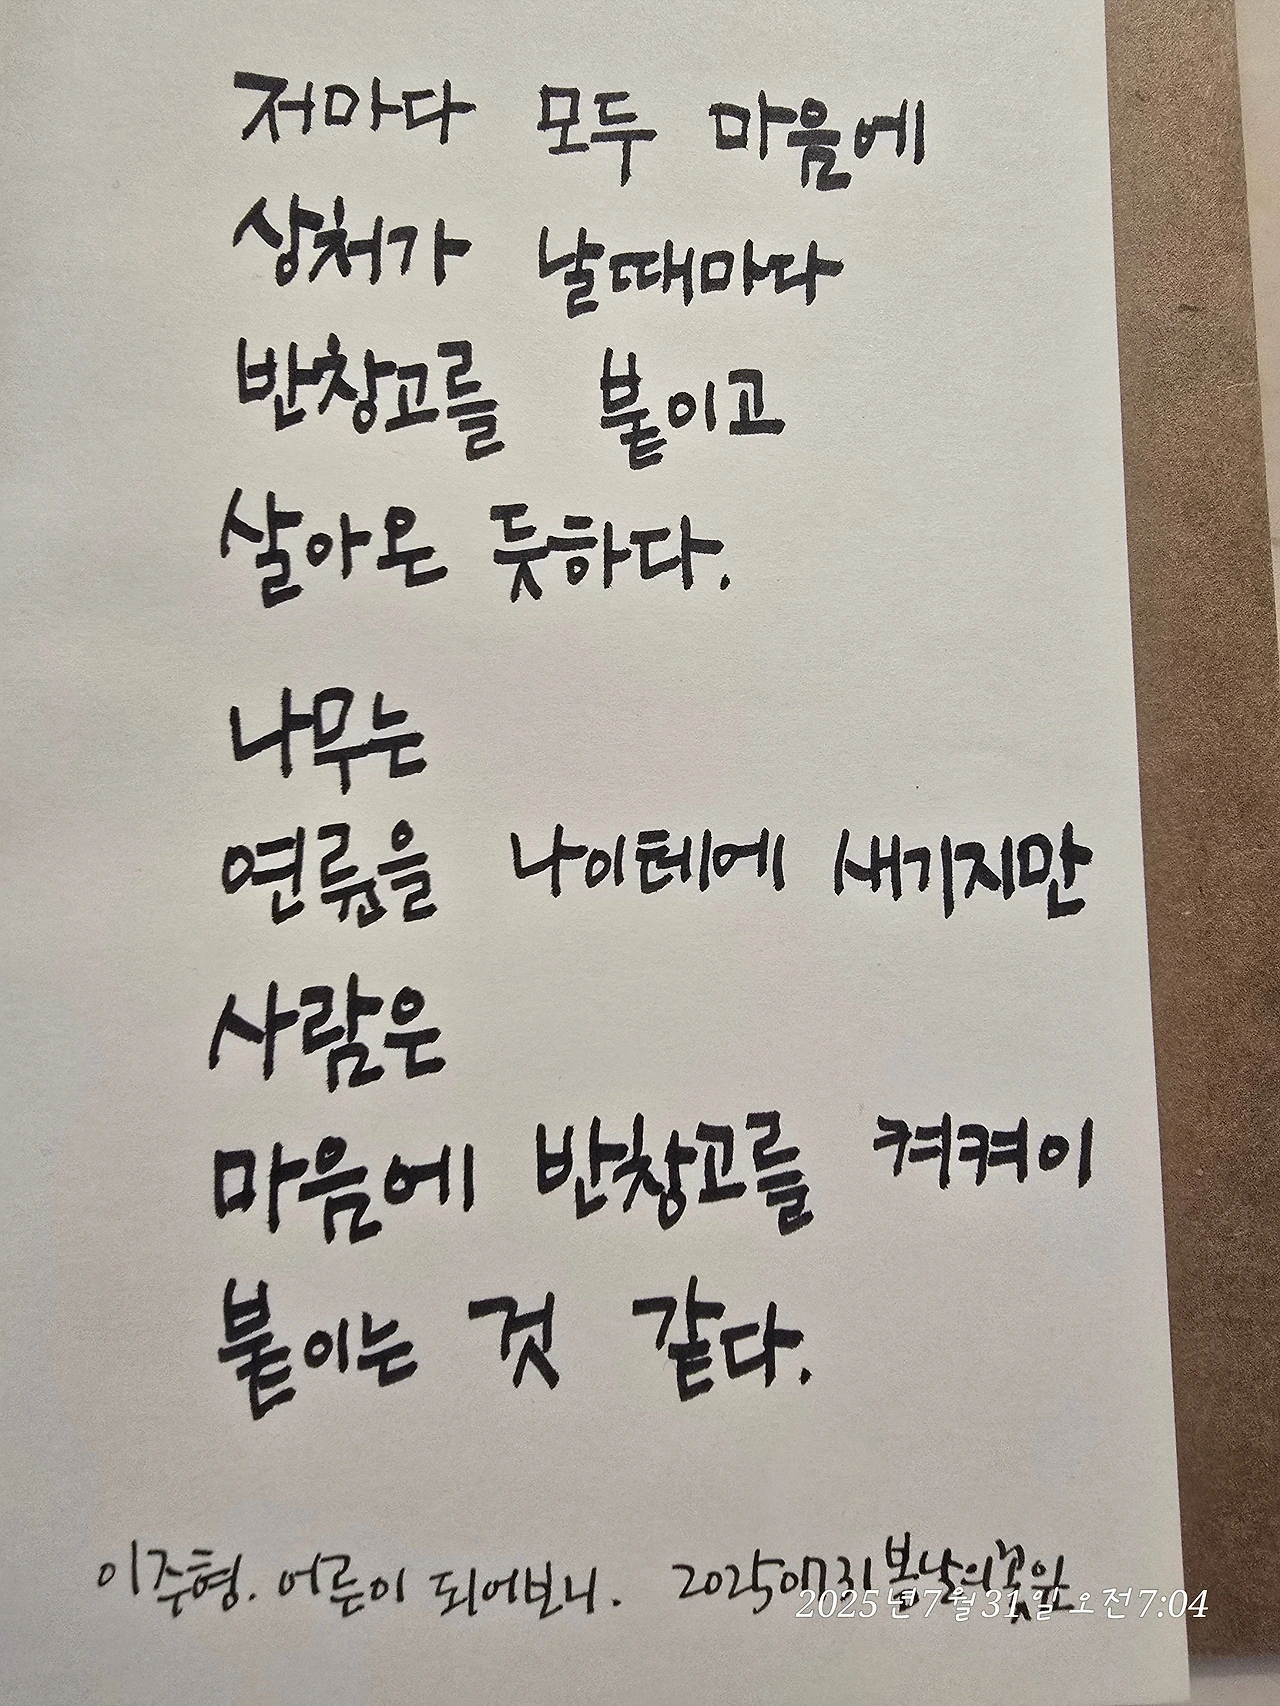 저마다 모두 마음에
상처가 날때마다
반창고를 붙이고
살아온 듯하다.
나무는
연륜을 나이테에 새기지만
사람은
마음에 반창고를 켜켜이
붙이는 것 같다.
이주형. 어른이 되어보니. 20250731 봄날의꽃잎
2025년7월31일오전7:04